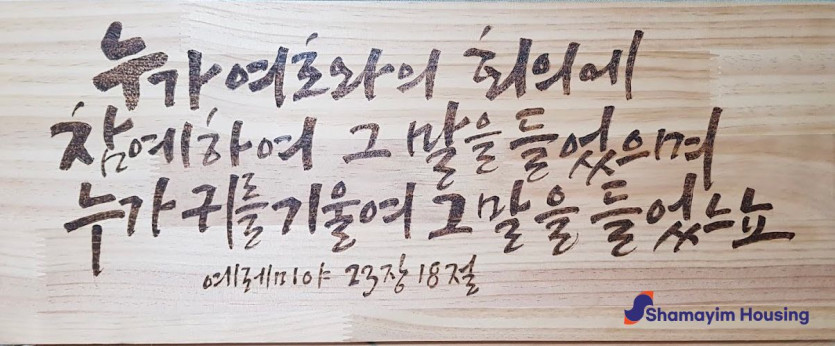 누가 여호와의 회의에
참예하여 그 말을 들었으며
누가 귀를 기울여 그 말을 들었느뇨
예레미야 23장 18절
Shamayim Housing